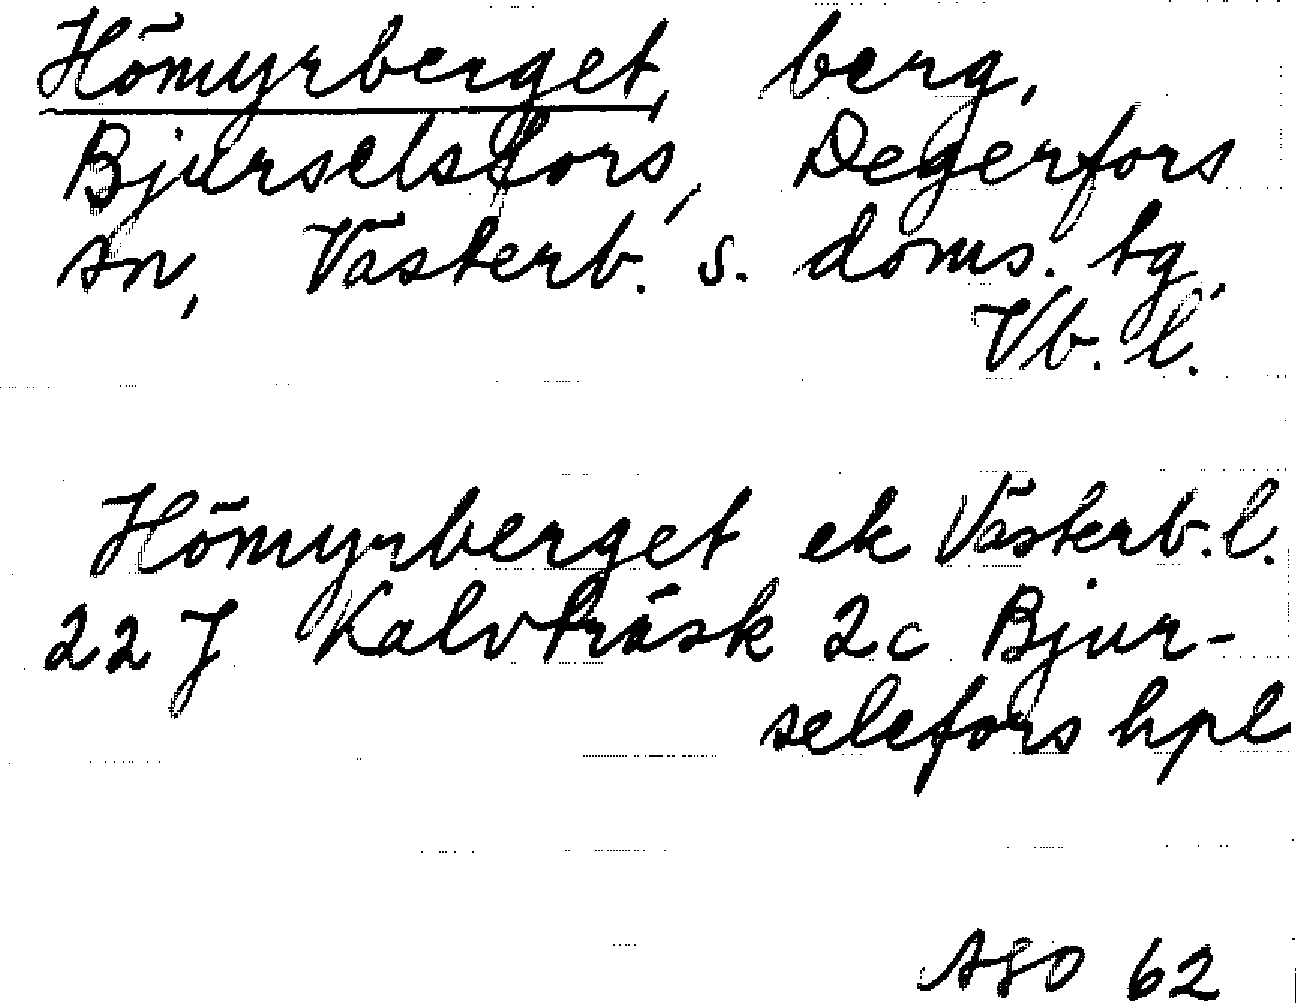 Hömyrberget, berg,
Bjurselsfors, Degerfors
sn, Västerb. s. doms. tg,
Vb. l.
Hömyrberget ek Västerb. l.
22 J Kalvträsk 2c Bjur-
selsfors hpl
62